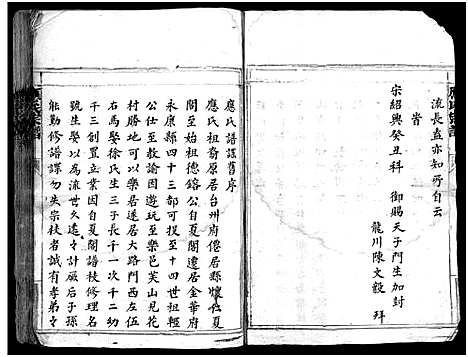 流長盍亦知所自云
旹
宋紹興癸丑科　御賜天子門生加封
龍川陳文毅　拜
應氏譜諜舊序
應氏祖裔原居台州府僊居縣懷仁夏
閣至始祖德鎔公自夏閣遷居金華府
永康縣四十三都可投至十四世祖輕
公仕至教諭因遊玩至樂邑芙山見花
村勝地可以居遷居大路門四班西左
右馬娶徐氏生三子長千一次千二幼
千三創置立業因自夏閣譜枝修理名
號生娶以為流世久遠之計厥后子孫
能勤修譜諜勿失宗枝者誠有孝弟之